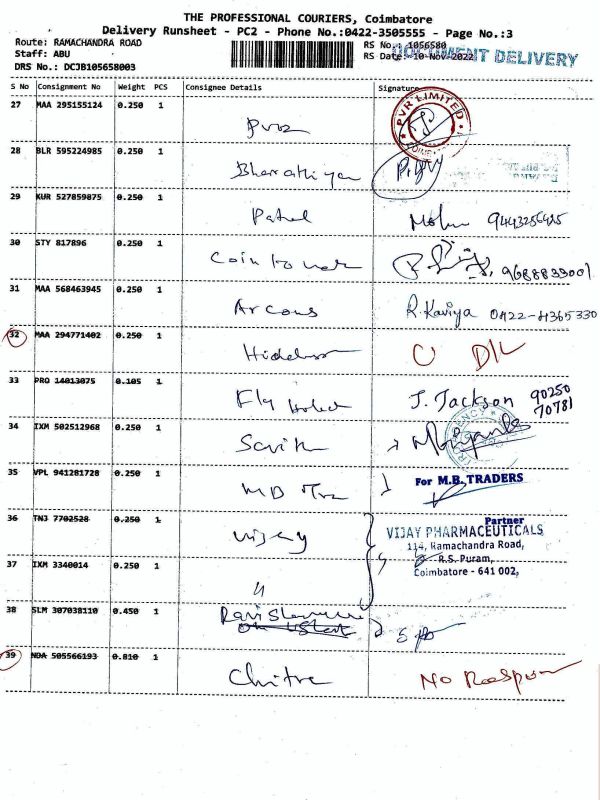 THE PROFESSIONAL COURIERS, Coimbatore
Delivery Runsheet - PC2 - Phone No.:0422-3505555 - Page No.:3
Route: RAMACHANDRA ROAD
Staff: ABU
DRS No.: DCJB105658003
RS No.: 1056580
RS Date: 10-Nov-2022
DOCUMENT DELIVERY
S No Consignment No Weight PCS Consignee Details Signature
27 MAA 295155124 0.250 1 PVR PVR LIMITED
28 BLR 595224985 0.250 1 Bharathiyar
29 KUR 527859875 0.250 1 Patel
30 STY 817896 0.250 1 9688833001
31 MAA 568463945 0.250 1 Arcons R.Kaviya 0422-4365330
32 MAA 294771402 0.250 1 D/L
33 PRO 14013075 0.105 1 Fly J. Jackson 90250
70781
34 IXM 502512968 0.250 1
35 VPL 941281728 0.250 1 MB For M.B. TRADERS
Partner
36 TNJ 7702528 0.250 1 Vijay VIJAY PHARMACEUTICALS
114, Ramachandra Road,
37 IXM 3340014 0.250 1 〃 R.S. Puram,
Coimbatore - 641 002,
38 SLM 307038110 0.450 1
39 NDA 505566193 0.810 1 Chitra No